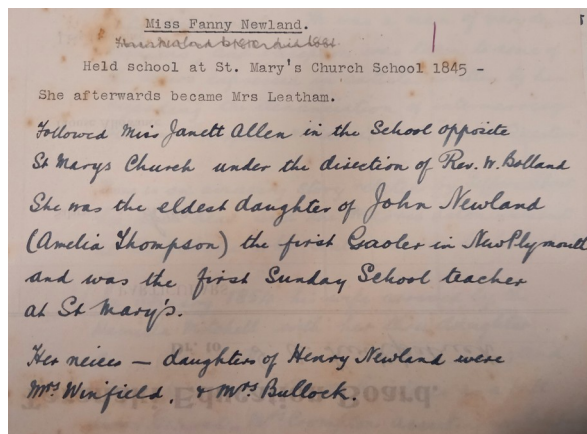 Miss Fanny Newland.
Held school at St. Mary's Church School 1845 -
She afterwards became Mrs Leatham.
Followed Miss Janett Allen in the School opposite
St Marys Church under the direction of Rev. W. Bolland
She was the eldest daughter of John Newland
(Amelia Thompson) the first Gaoler in New Plymouth
and was the first Sunday School teacher
at St Mary's.
Her neices — daughters of Henry Newland were
Mrs Winfield, & Mrs Bullock.